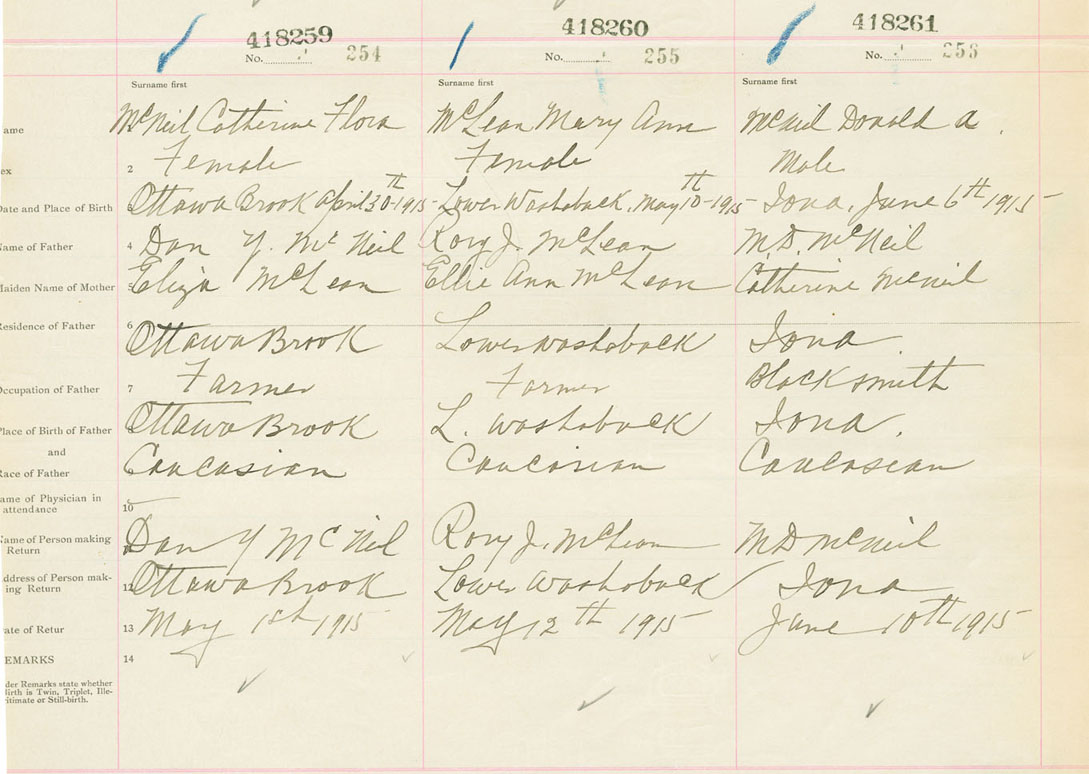 418259 418260 418261
No. 254 No. 255 No. 256
Surname first Surname first Surname first
ame McNeil Catherine Flora McLean Mary Ann McNeil Donald A.
ex 2 Female Female Male
Date and Place of Birth 3 Ottawa Brook April 30th 1915 Lower Washaback, May 10th 1915 Iona, June 6th 1915
Name of Father 4 Dan Y. McNeil Rory J. McLean M.D. McNeil
Maiden Name of Mother 5 Eliza McLean Ellie Ann McLean Catherine McNeil
Residence of Father 6 Ottawa Brook Lower Washaback Iona.
Occupation of Father 7 Farmer Farmer Blacksmith
Place of Birth of Father Ottawa Brook L. Washaback Iona.
and
Race of Father Caucasian Caucasian Caucasean
ame of Physician in
attendance 10
Name of Person making
Return Dan Y McNeil Rory J. McLean M D McNeil
ddress of Person mak-
ing Return 12 Ottawa Brook Lower Washaback Iona
ate of Retur 13 May 1st 1915 May 12th 1915 June 10th 1915
EMARKS 14
der Remarks state whether
irth is Twin, Triplet, Ille-
itimate or Still-birth.